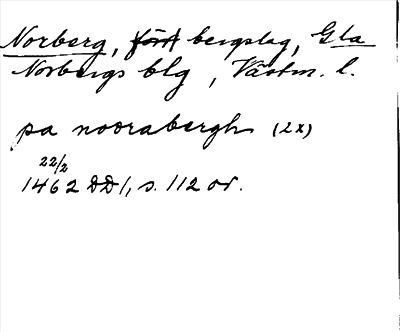 Norberg, bergslag, Gla
Norbergs blg, Västm. l.
pa noorabergh (2x)
22/2
1462 DD1, s. 112 or.